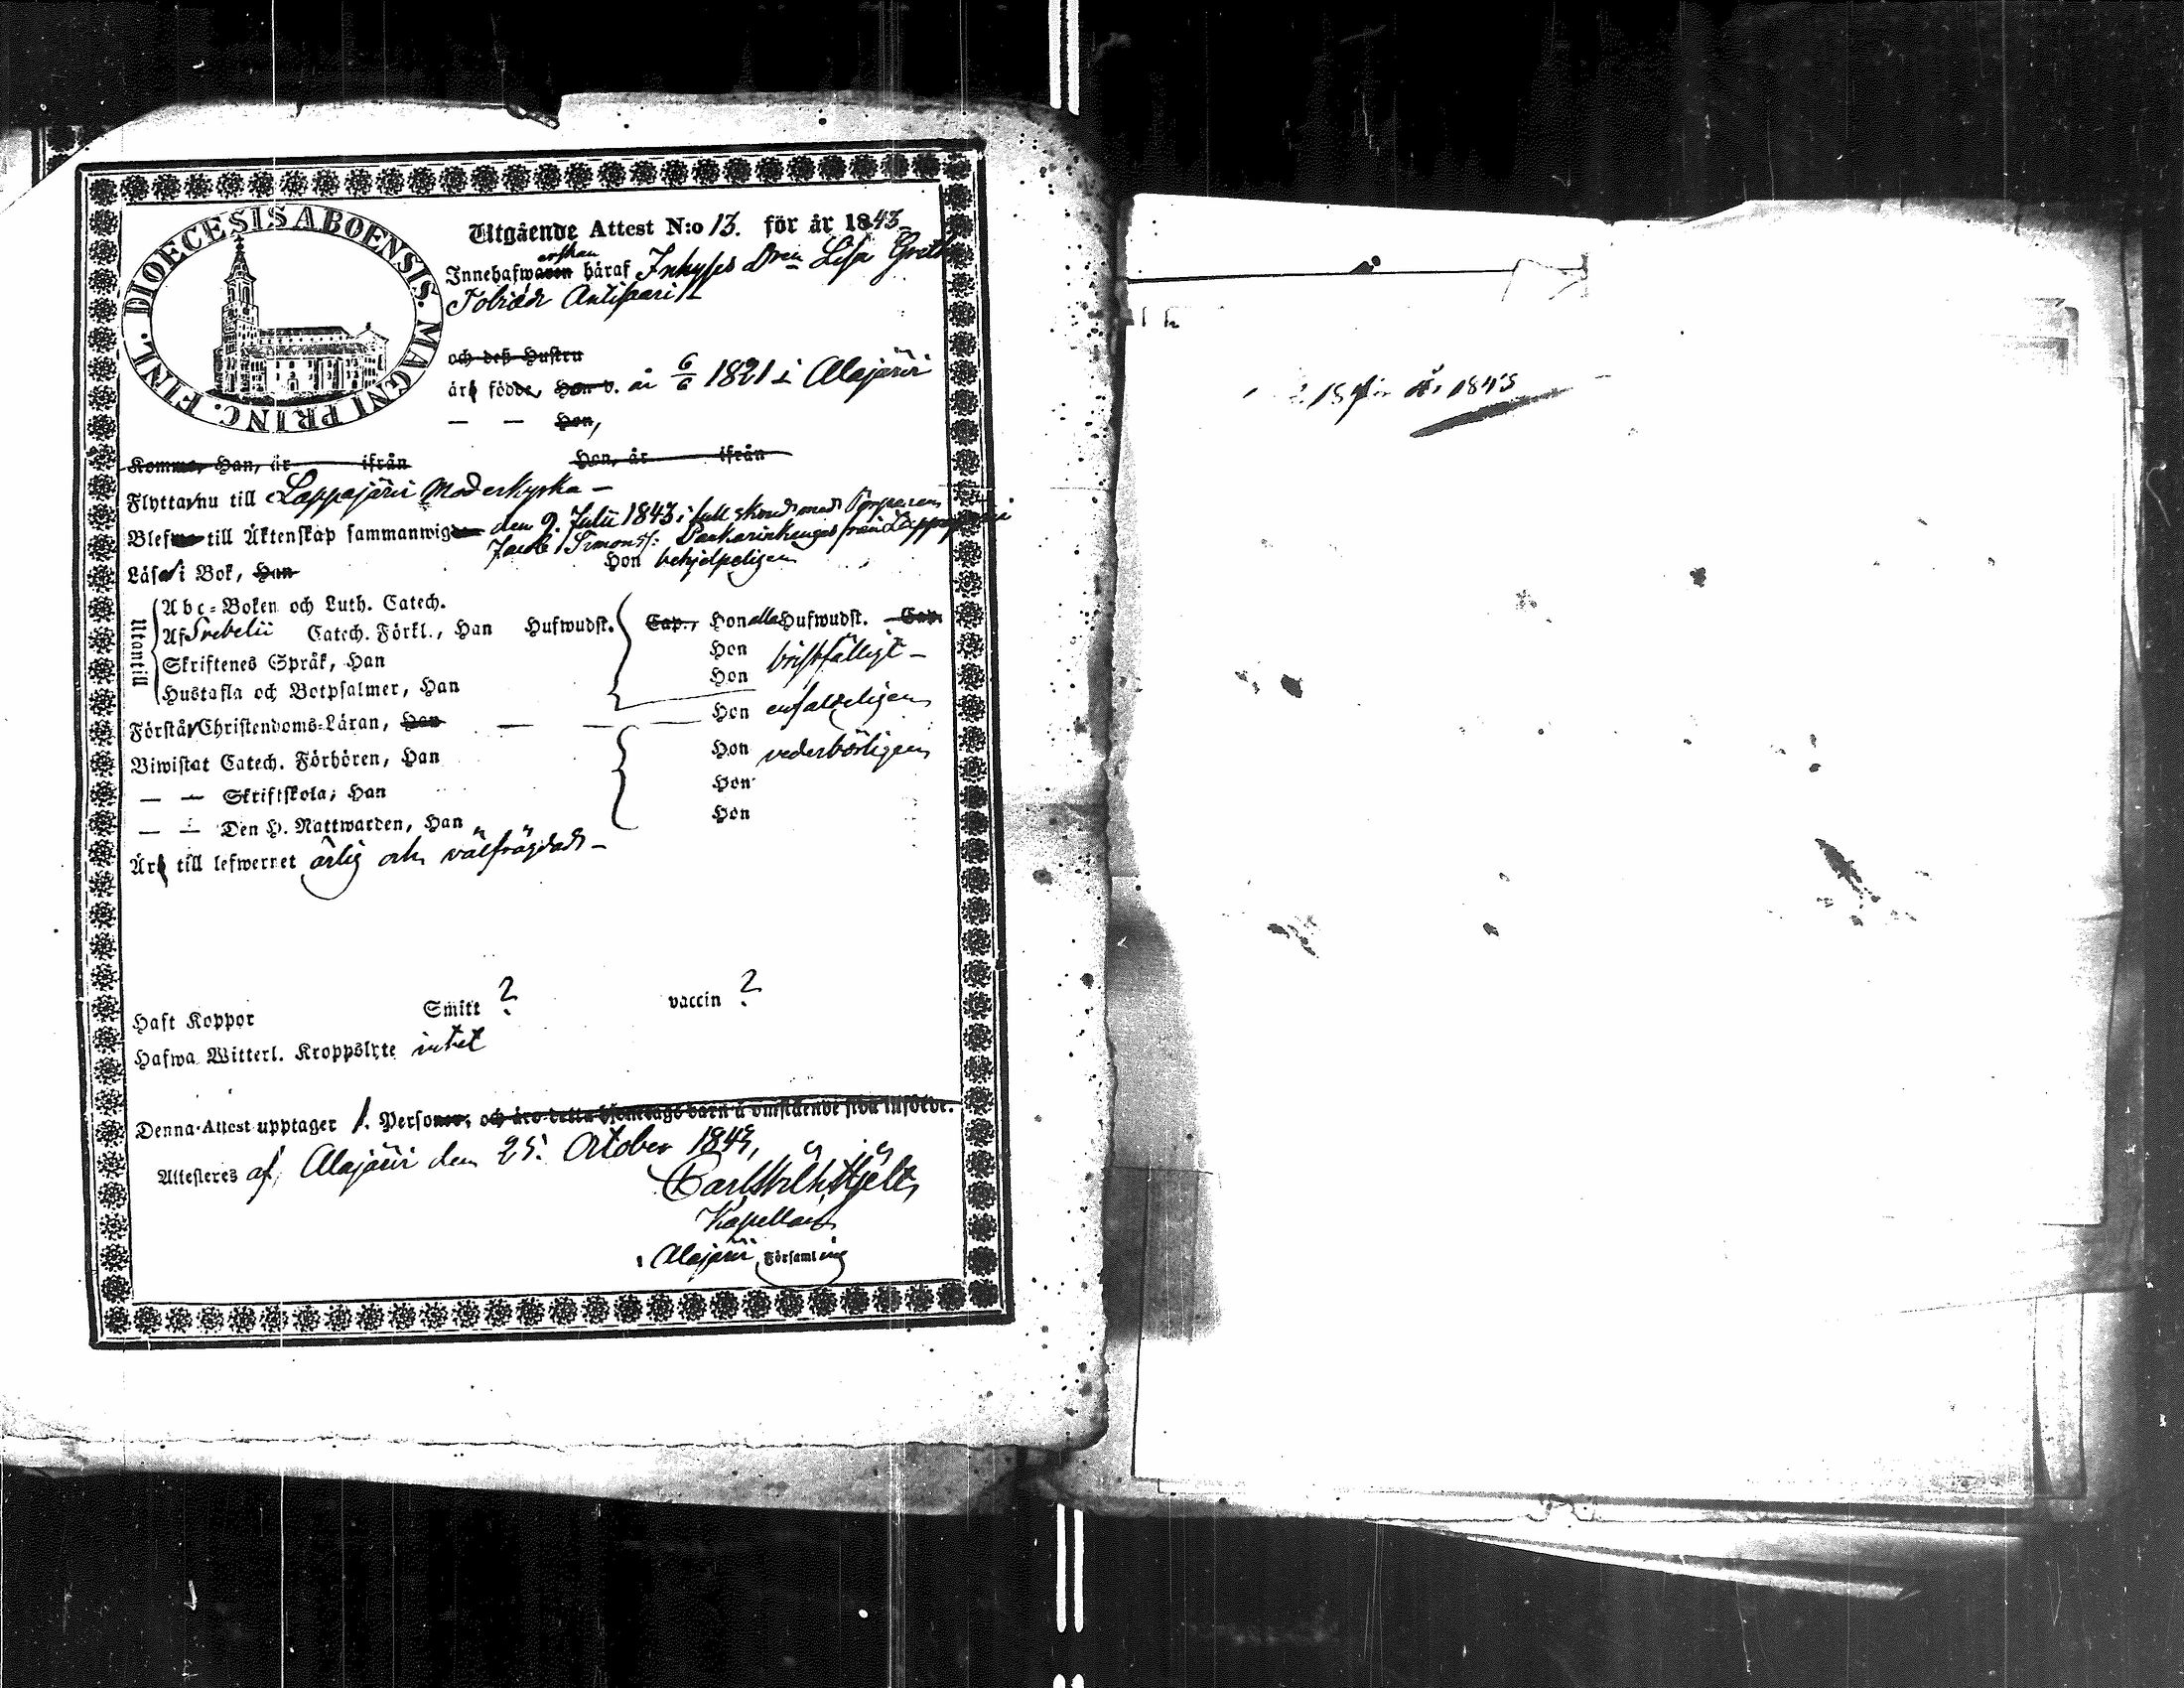 DIOECESIS ABOENSIS. MAGNI PRINC. FINL.
Utgående Attest N:o 13. för år 1843
erskan
Innehafwaren häraf Inhyses Dren Lisa Greth
Tobiädr Antipari
och deß Hustru
äro födde, Han d. år 6/6 1821 i Alajärvi
— — Hon,
Komma, Han, år ifrån Hon, år ifrån
Flytta nu till Lappajärvi Moderkyrka —
Blefwo till Äktenskap sammanwigde den 9. Julii 1843 i full stånd med Torparen
Jacob Simonss: från Lappajärvi
Läsa i Bok, Han Hon behjelpeligen
Utantill
Abc-Boken och Luth. Catech.
Af Svebelii Catech. Förkl., Han Hufwudst. Cap., Hon alla Hufwudst. Cap.
Skriftenes Språk, Han Hon bristfälligt —
Hustafla och Botpsalmer, Han Hon
Förstår Christendoms-Läran, Han — — — Hon enfaldeligen
Biwistat Catech. Förhören, Han Hon vederbörligen
— — Skriftskola, Han Hon
— — Den H. Nattwarden, Han Hon
Äro till lefwernet ärlig och välfrägdad —
Haft Koppor Smitt ? vaccin ?
Hafwa Witterl. Kroppslyte intet
Denna Attest upptager 1. Personer, och äro detta Hjonelags barn å omstående sida införde.
Attesteres af, Alajärvi den 25. October 1843,
Carl Wilh. Hjelt,
Kapellan
i Alajärvi Församling
för år 1843